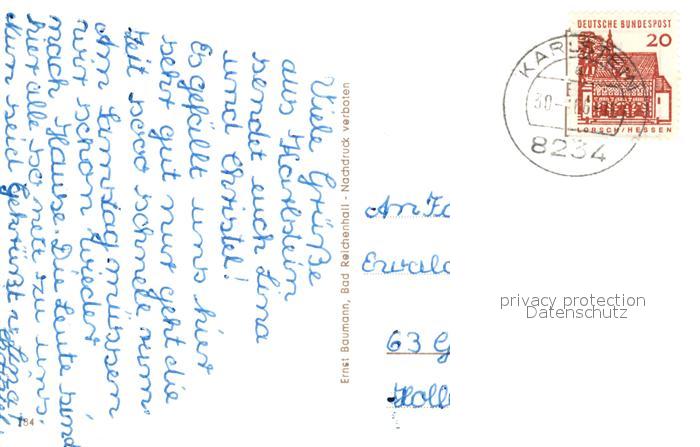 Viele Grüße
aus Karlstein
sendet euch Lina
und Christel!
Es gefällt uns hier
sehr gut nur geht die
Zeit sooo schnell rum
Am Samstag müssen
wir schon wieder
nach Hause. Die Leute sind
hier alle so nett zu uns.
Nun seid gegrüßt v. Lina!
Ernst Baumann, Bad Reichenhall - Nachdruck verboten
184
DEUTSCHE BUNDESPOST
20
LORSCH/HESSEN
KARLSTEIN
30
8234
An Fa
Ewald
63 G
Holl
privacy protection
Datenschutz